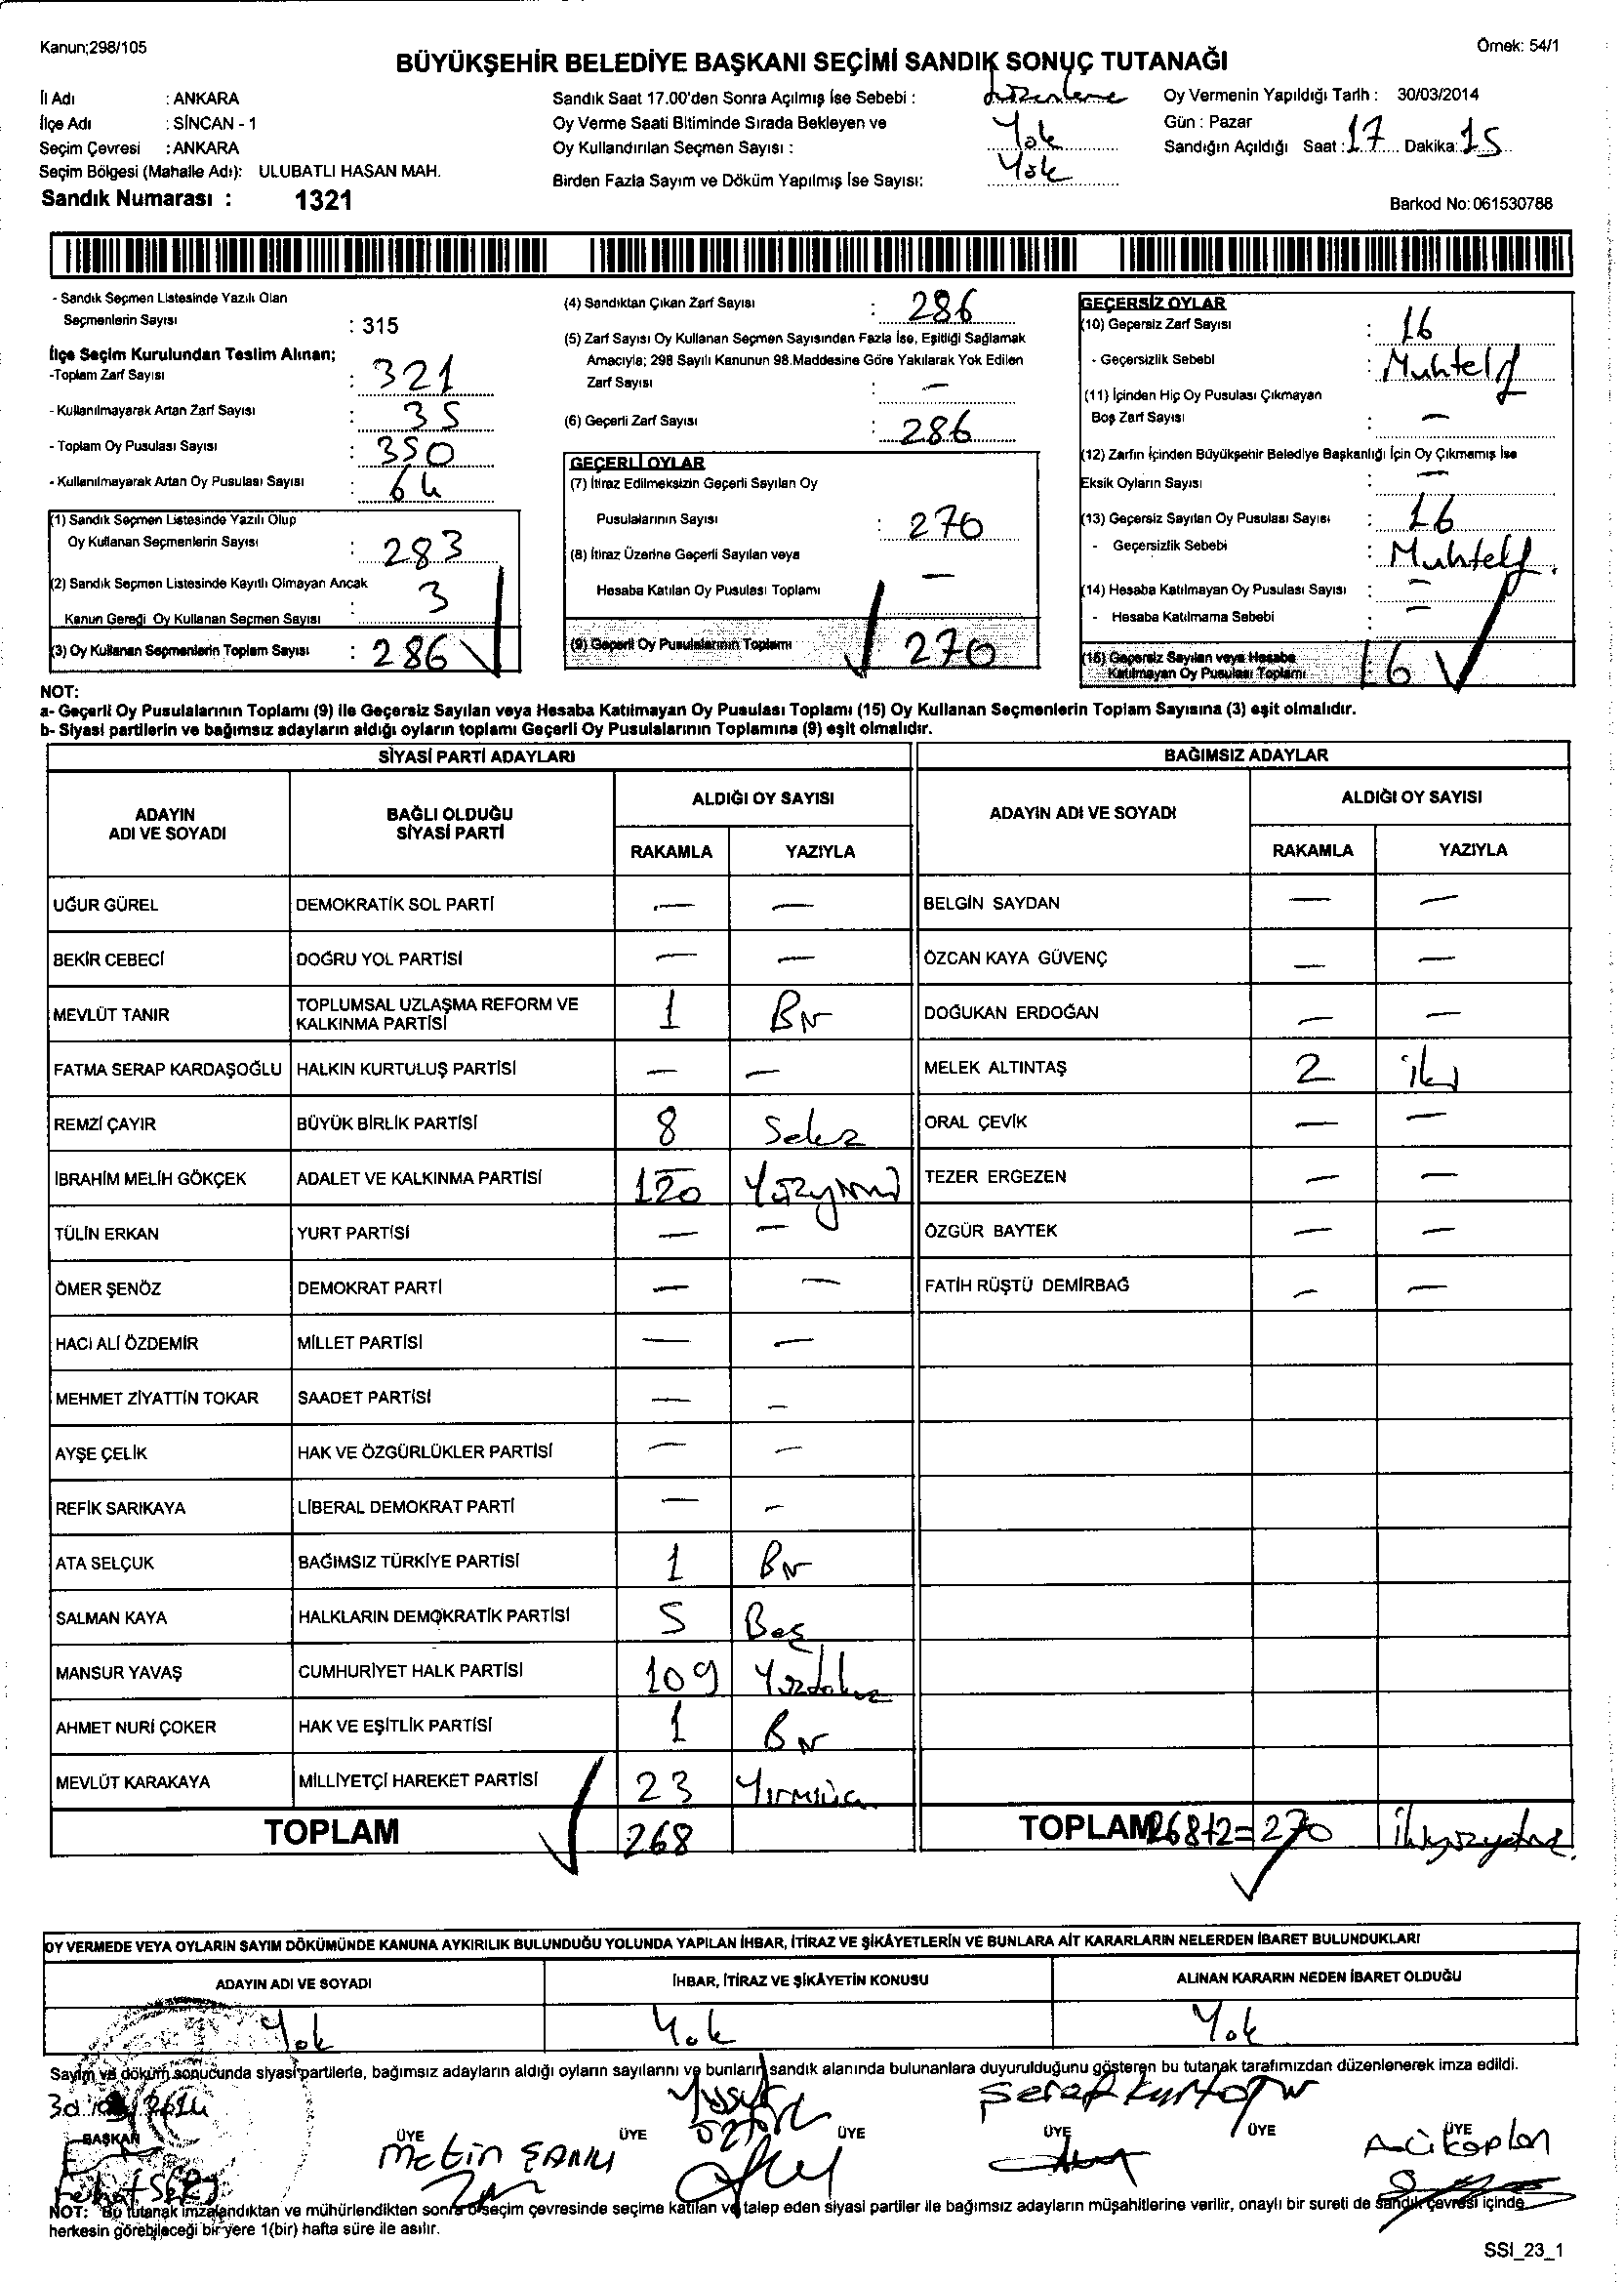 Kanun;298/105
Örnek: 54/1
BÜYÜKŞEHİR BELEDİYE BAŞKANI SEÇİMİ SANDIK SONUÇ TUTANAĞI
İl Adı : ANKARA
İlçe Adı : SİNCAN - 1
Seçim Çevresi : ANKARA
Seçim Bölgesi (Mahalle Adı): ULUBATLI HASAN MAH.
Sandık Numarası : 1321
Sandık Saat 17.00'den Sonra Açılmış İse Sebebi :
Oy Verme Saati Bitiminde Sırada Bekleyen ve
Oy Kullandırılan Seçmen Sayısı : Yok
Birden Fazla Sayım ve Döküm Yapılmış İse Sayısı: Yok
Oy Vermenin Yapıldığı Tarih : 30/03/2014
Gün : Pazar
Sandığın Açıldığı Saat : 17 Dakika: 15
Barkod No: 061530788
- Sandık Seçmen Listesinde Yazılı Olan
Seçmenlerin Sayısı : 315
İlçe Seçim Kurulundan Teslim Alınan;
-Toplam Zarf Sayısı : 321
- Kullanılmayarak Artan Zarf Sayısı : 35
- Toplam Oy Pusulası Sayısı : 350
- Kullanılmayarak Artan Oy Pusulası Sayısı : 64
(1) Sandık Seçmen Listesinde Yazılı Olup
Oy Kullanan Seçmenlerin Sayısı : 283
(2) Sandık Seçmen Listesinde Kayıtlı Olmayan Ancak
Kanun Gereği Oy Kullanan Seçmen Sayısı : 3
(3) Oy Kullanan Seçmenlerin Toplam Sayısı : 286
(4) Sandıktan Çıkan Zarf Sayısı : 286
(5) Zarf Sayısı Oy Kullanan Seçmen Sayısından Fazla İse, Eşitliği Sağlamak
Amacıyla; 298 Sayılı Kanunun 98.Maddesine Göre Yakılarak Yok Edilen
Zarf Sayısı : —
(6) Geçerli Zarf Sayısı : 286
GEÇERLİ OYLAR
(7) İtiraz Edilmeksizin Geçerli Sayılan Oy
Pusulalarının Sayısı : 270
(8) İtiraz Üzerine Geçerli Sayılan veya
Hesaba Katılan Oy Pusulası Toplamı —
(9) Geçerli Oy Pusulalarının Toplamı 270
GEÇERSİZ OYLAR
(10) Geçersiz Zarf Sayısı : 16
- Geçersizlik Sebebi : Muhtelif
(11) İçinden Hiç Oy Pusulası Çıkmayan
Boş Zarf Sayısı : —
(12) Zarfın İçinden Büyükşehir Belediye Başkanlığı İçin Oy Çıkmamış İse
Eksik Oyların Sayısı : —
(13) Geçersiz Sayılan Oy Pusulası Sayısı : 16
- Geçersizlik Sebebi : Muhtelif.
(14) Hesaba Katılmayan Oy Pusulası Sayısı : —
- Hesaba Katılmama Sebebi : —
(15) Geçersiz Sayılan veya Hesaba
Katılmayan Oy Pusulası Toplamı 16
NOT:
a- Geçerli Oy Pusulalarının Toplamı (9) ile Geçersiz Sayılan veya Hesaba Katılmayan Oy Pusulası Toplamı (15) Oy Kullanan Seçmenlerin Toplam Sayısına (3) eşit olmalıdır.
b- Siyasi partilerin ve bağımsız adayların aldığı oyların toplamı Geçerli Oy Pusulalarının Toplamına (9) eşit olmalıdır.
SİYASİ PARTİ ADAYLARI BAĞIMSIZ ADAYLAR
ADAYIN ADI VE SOYADI BAĞLI OLDUĞU SİYASİ PARTİ ALDIĞI OY SAYISI ADAYIN ADI VE SOYADI ALDIĞI OY SAYISI
RAKAMLA YAZIYLA RAKAMLA YAZIYLA
UĞUR GÜREL DEMOKRATİK SOL PARTİ — — BELGİN SAYDAN — —
BEKİR CEBECİ DOĞRU YOL PARTİSİ — — ÖZCAN KAYA GÜVENÇ — —
MEVLÜT TANIR TOPLUMSAL UZLAŞMA REFORM VE KALKINMA PARTİSİ 1 Bir DOĞUKAN ERDOĞAN — —
FATMA SERAP KARDAŞOĞLU HALKIN KURTULUŞ PARTİSİ — — MELEK ALTINTAŞ 2 iki
REMZİ ÇAYIR BÜYÜK BİRLİK PARTİSİ 8 Sekiz ORAL ÇEVİK — —
İBRAHİM MELİH GÖKÇEK ADALET VE KALKINMA PARTİSİ 120 Yüzyirmi TEZER ERGEZEN — —
TÜLİN ERKAN YURT PARTİSİ — — ÖZGÜR BAYTEK — —
ÖMER ŞENÖZ DEMOKRAT PARTİ — — FATİH RÜŞTÜ DEMİRBAĞ — —
HACI ALİ ÖZDEMİR MİLLET PARTİSİ — —
MEHMET ZİYATTİN TOKAR SAADET PARTİSİ — —
AYŞE ÇELİK HAK VE ÖZGÜRLÜKLER PARTİSİ — —
REFİK SARIKAYA LİBERAL DEMOKRAT PARTİ — —
ATA SELÇUK BAĞIMSIZ TÜRKİYE PARTİSİ 1 Bir
SALMAN KAYA HALKLARIN DEMOKRATİK PARTİSİ 5 Beş
MANSUR YAVAŞ CUMHURİYET HALK PARTİSİ 109 Yüzdokuz
AHMET NURİ ÇOKER HAK VE EŞİTLİK PARTİSİ 1 Bir
MEVLÜT KARAKAYA MİLLİYETÇİ HAREKET PARTİSİ 23 Yirmiüç
TOPLAM 268 TOPLAM 268+2=270 ikiyüzyetmiş
OY VERMEDE VEYA OYLARIN SAYIM DÖKÜMÜNDE KANUNA AYKIRILIK BULUNDUĞU YOLUNDA YAPILAN İHBAR, İTİRAZ VE ŞİKÂYETLERİN VE BUNLARA AİT KARARLARIN NELERDEN İBARET BULUNDUKLARI
ADAYIN ADI VE SOYADI İHBAR, İTİRAZ VE ŞİKÂYETİN KONUSU ALINAN KARARIN NEDEN İBARET OLDUĞU
Yok Yok Yok
Sayım ve döküm sonucunda siyasi partilerle, bağımsız adayların aldığı oyların sayılarını ve bunların sandık alanında bulunanlara duyurulduğunu gösteren bu tutanak tarafımızdan düzenlenerek imza edildi.
BAŞKAN ÜYE ÜYE ÜYE ÜYE ÜYE ÜYE
Metin Yusuf Öztürk Şeref
NOT: Bu tutanak imzalandıktan ve mühürlendikten sonra o seçim çevresinde seçime katılan ve talep eden siyasi partiler ile bağımsız adayların müşahitlerine verilir, onaylı bir sureti de sandık çevresi içinde
herkesin görebileceği bir yere 1(bir) hafta süre ile asılır.
SSİ_23_1